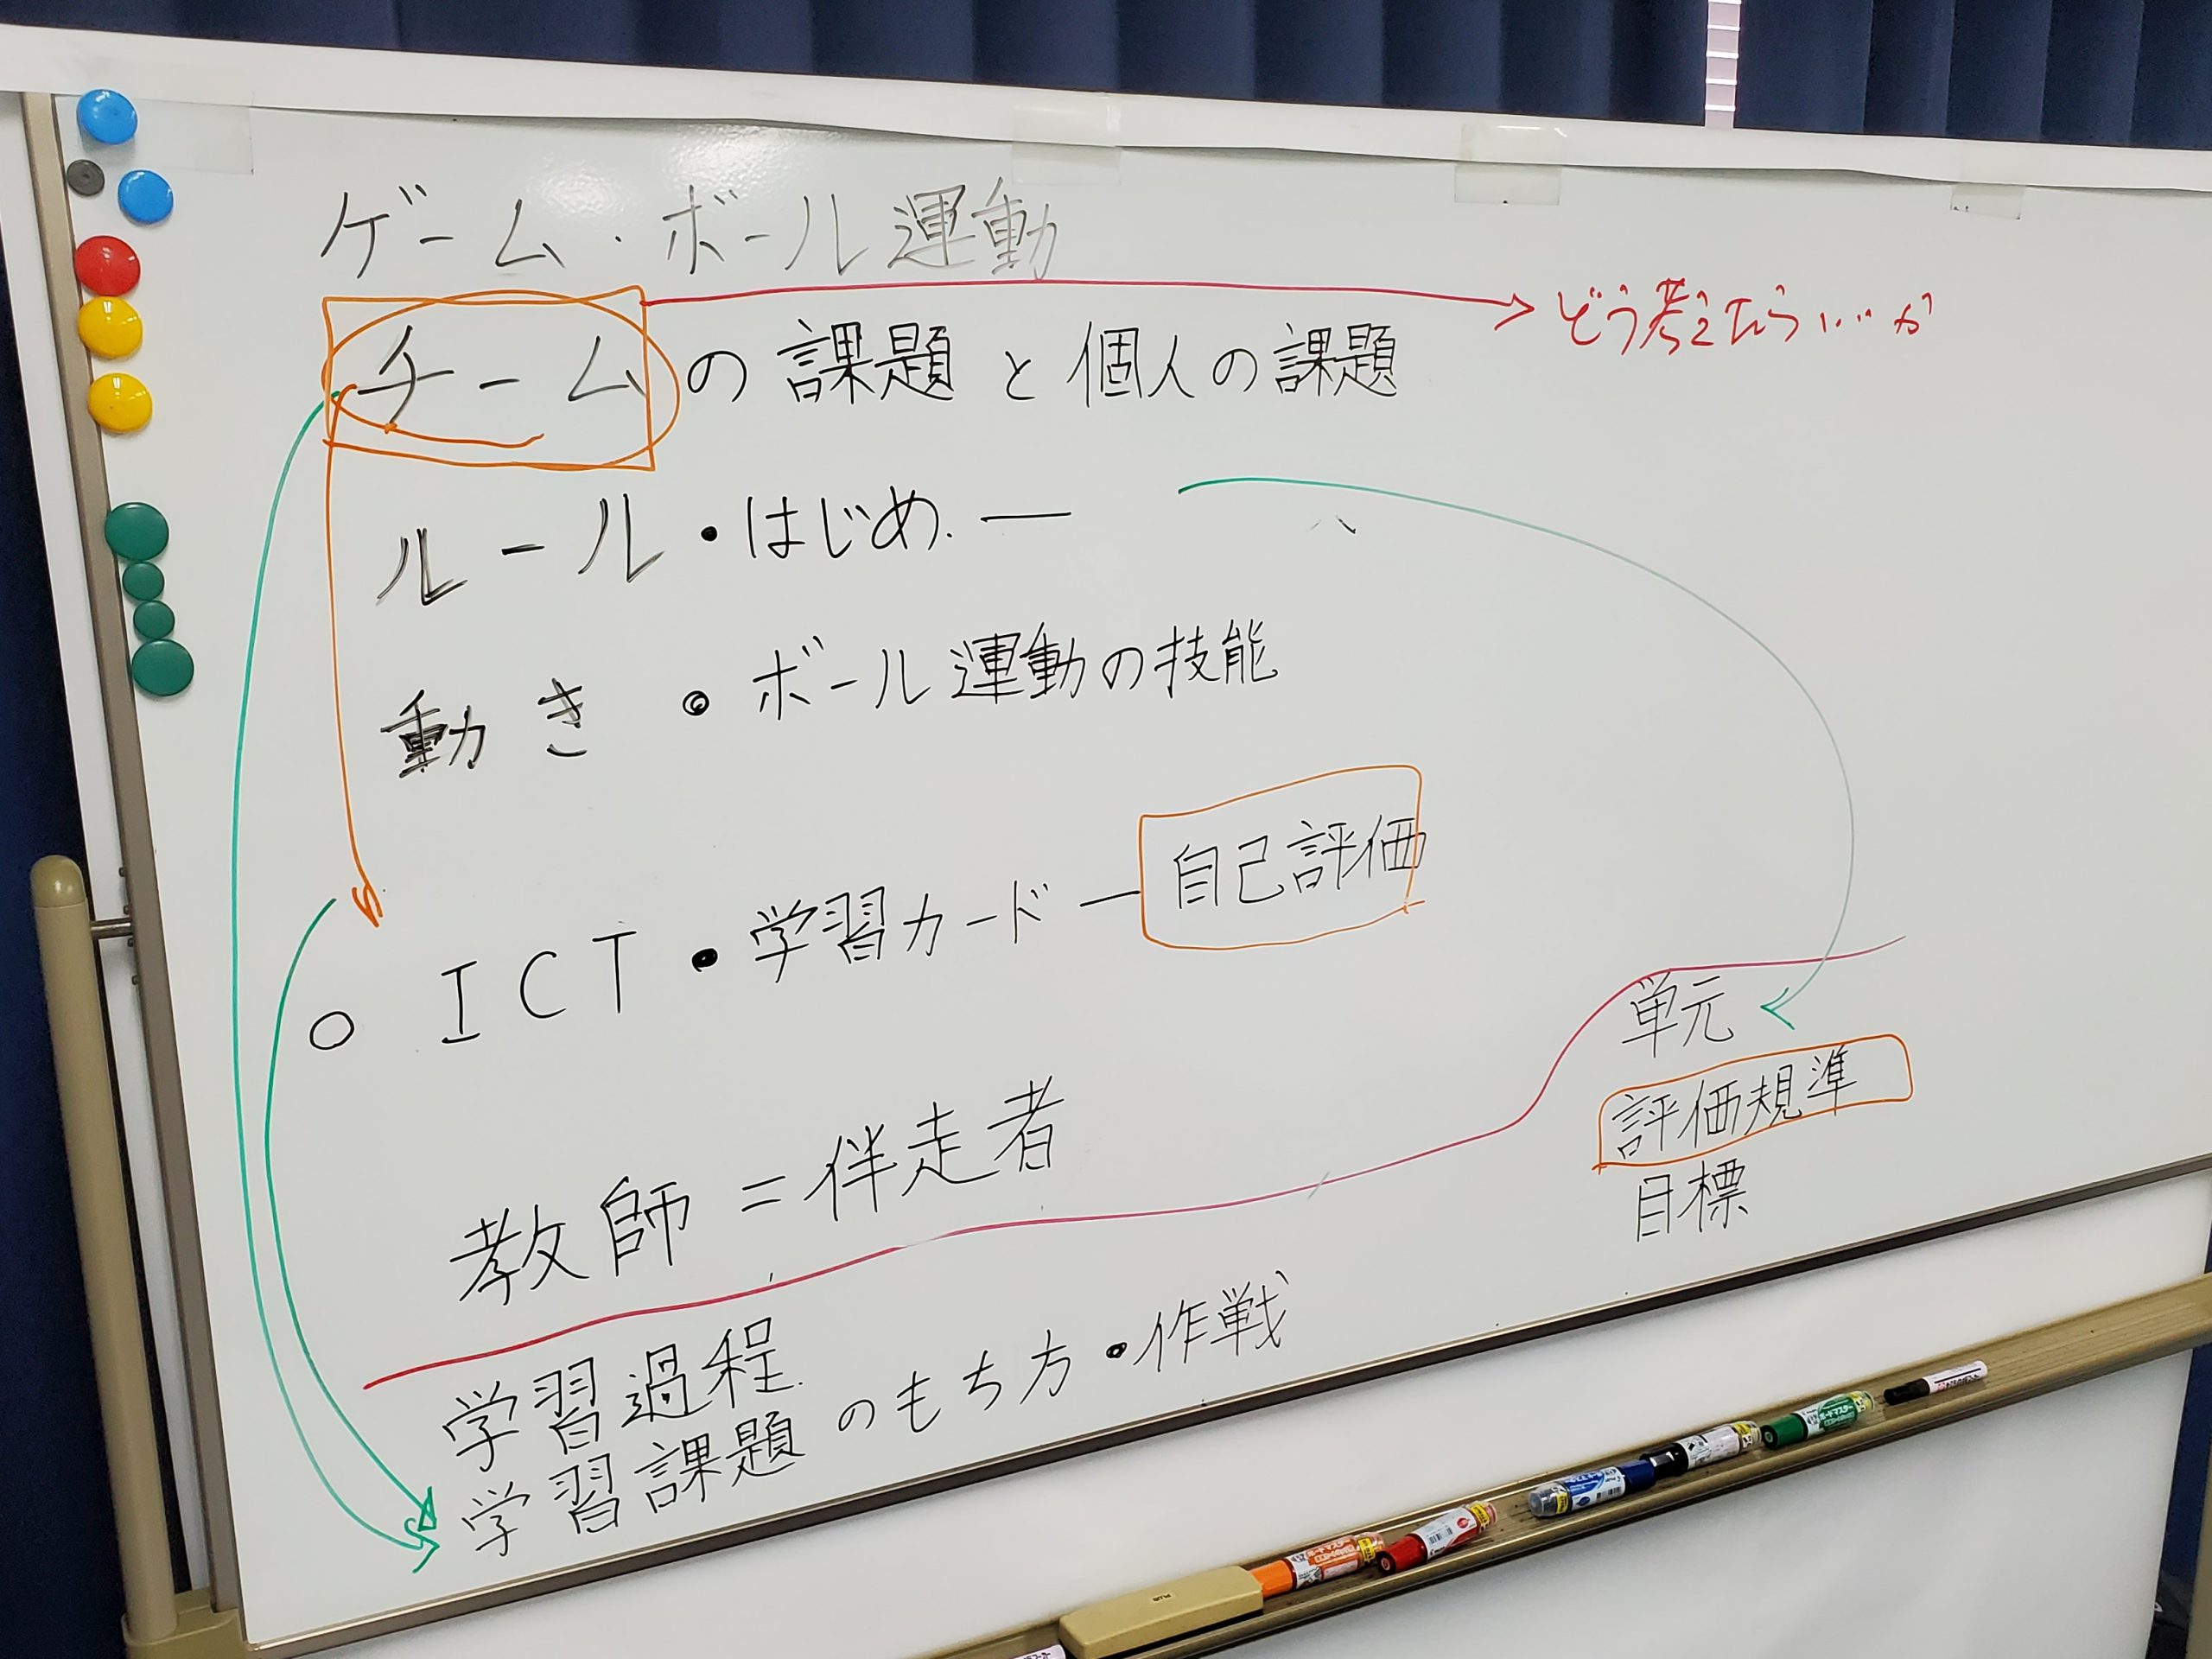 ゲーム・ボール運動
チームの課題と個人の課題
どう考えたらいいか
ルール・はじめ ―
動き ・ボール運動の技能
○ ICT・学習カード ― 自己評価
教師=伴走者
単元
評価規準
目標
学習過程
学習課題のもち方・作戦